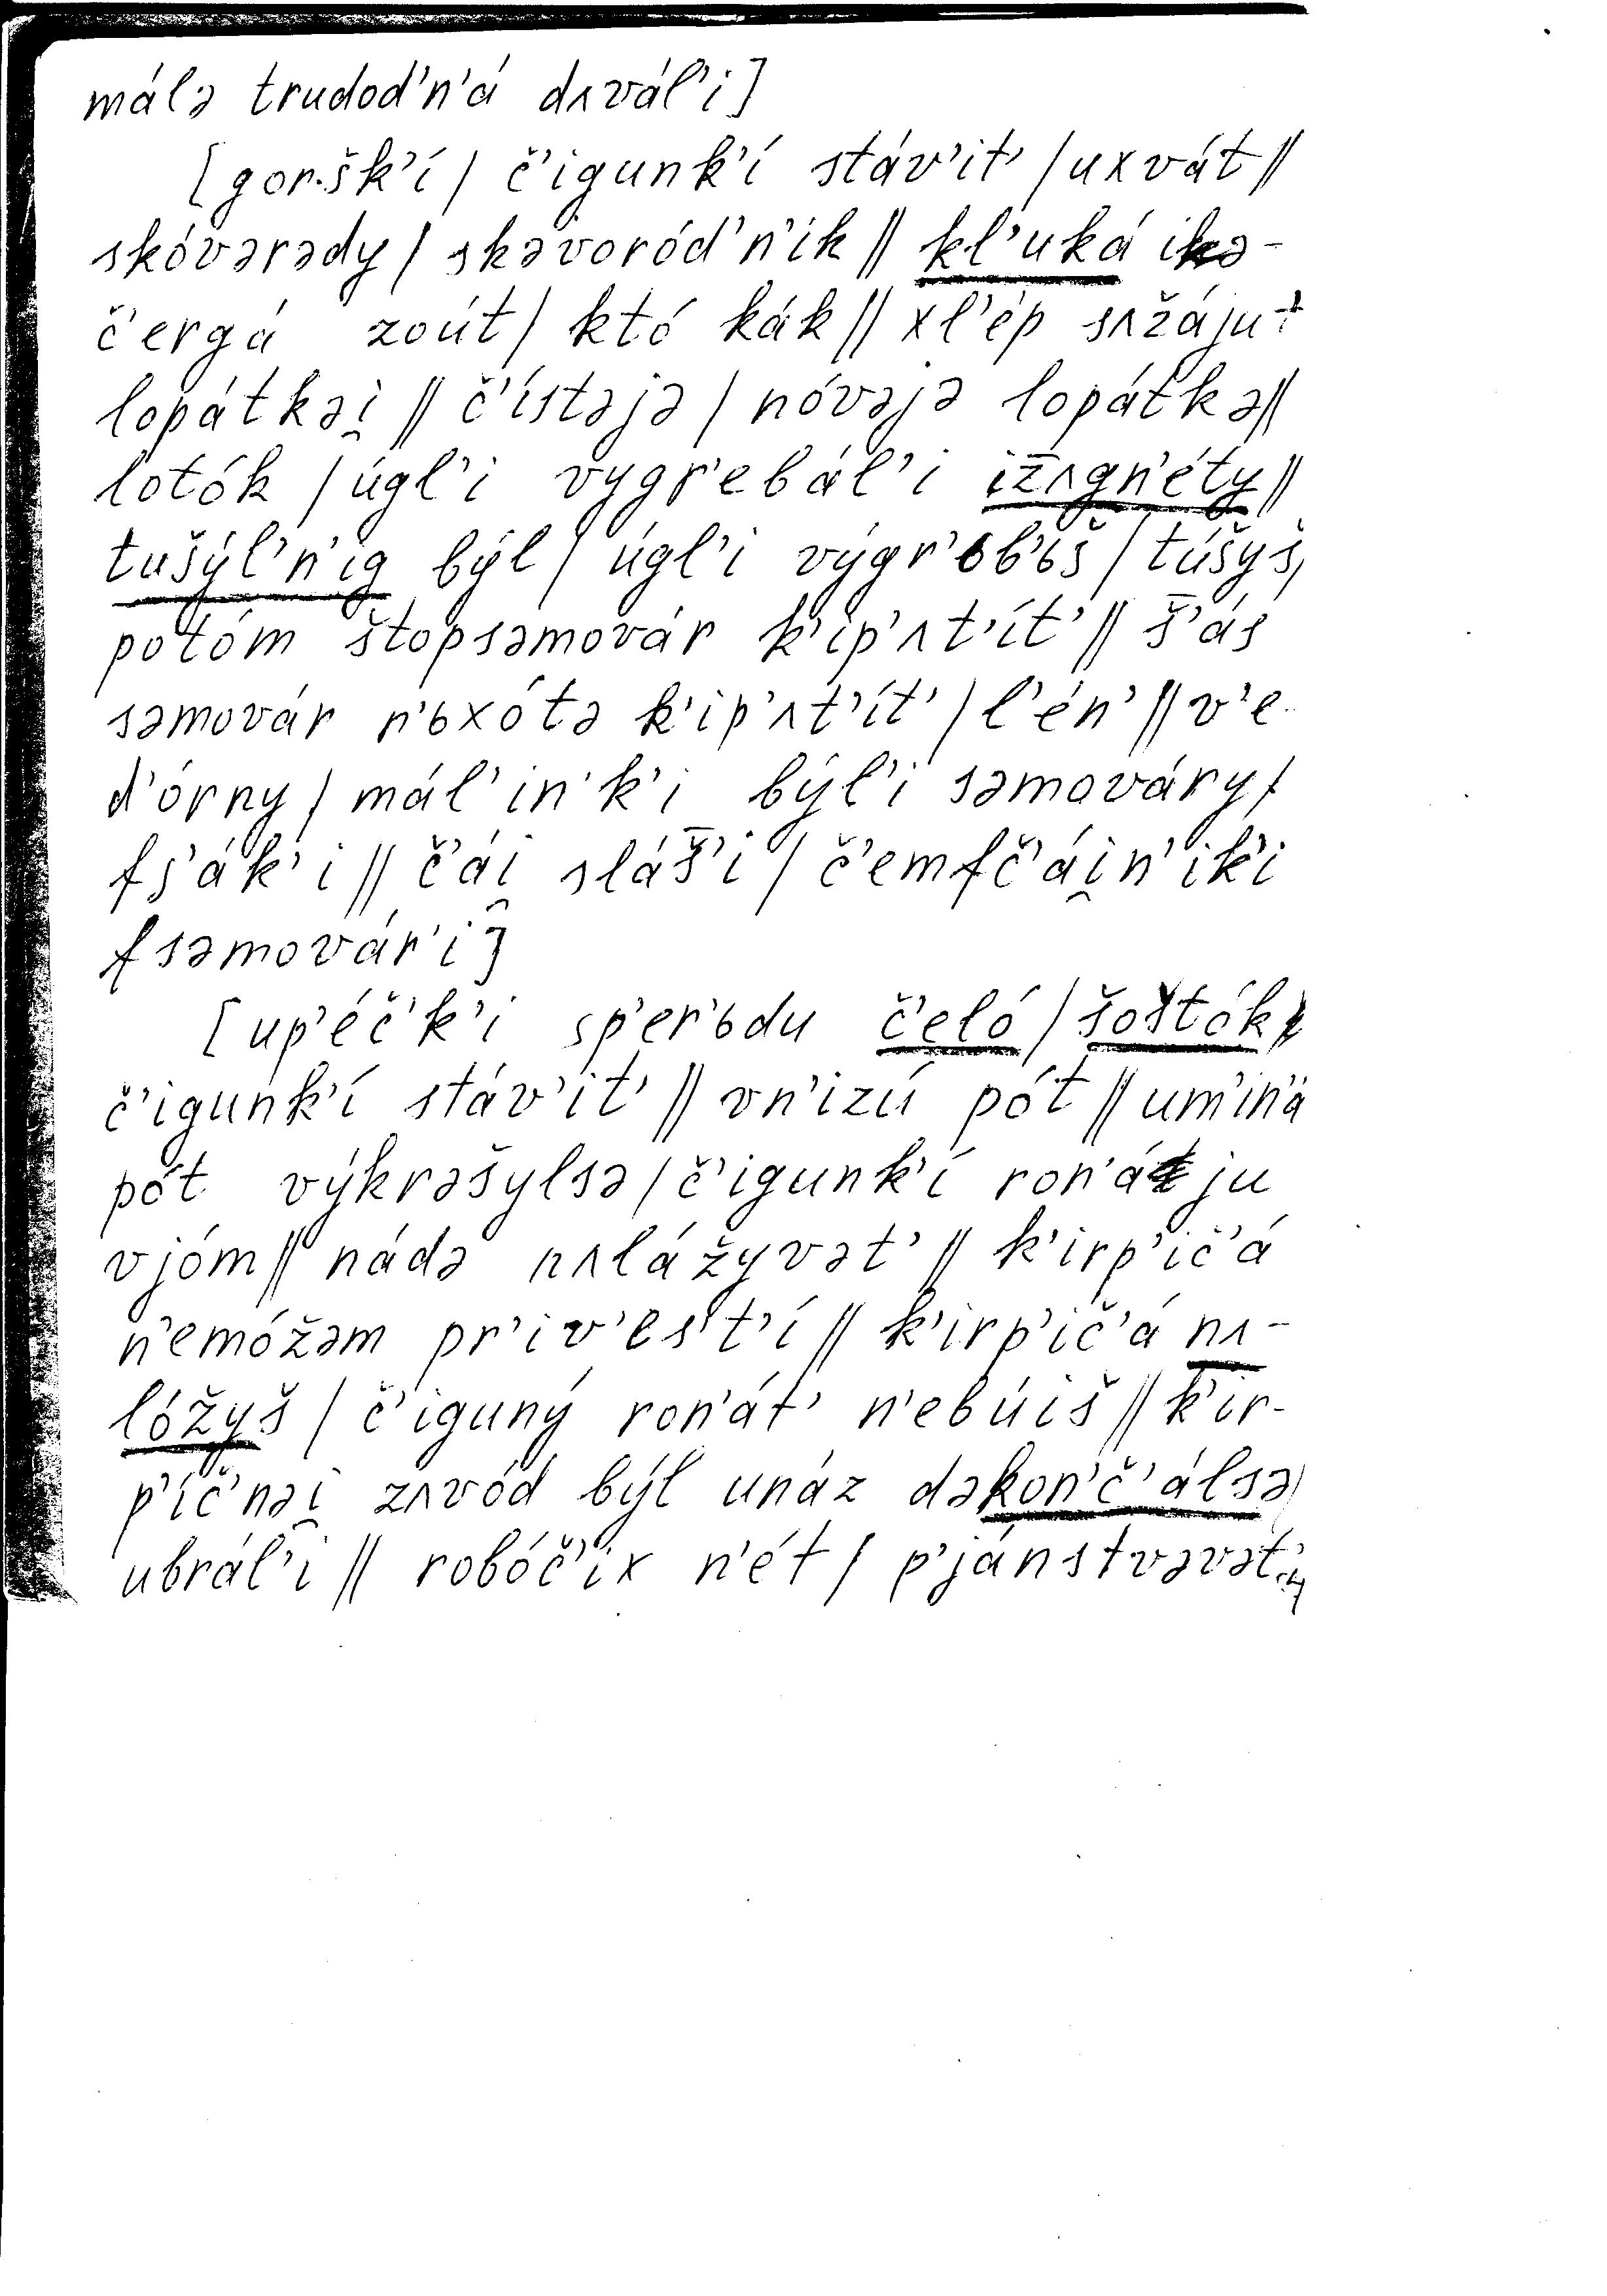 málə trudod’n’á dʌvál’i]
[goršk’í / č’igunk’í stáv’it’ / uxvát //
skóvərədy / skəvoród’n’ik // kl’uká ikə-
č’ergá zoút / któ kák // xl’ép sʌžájut
lopátkəi̯ // č’ístəjə / nóvəjə lopátkə //
lotók / úgl’i vygr’ebál’i iz̄ʌgn’éty //
tušýl’n’ig býl / úgl’i výgr’ьb’ьš / túšyš /
potóm štopsəmovár k’ip’ʌt’ít’ // š̄’ás
səmovár n’ьxótə k’ip’ʌt’ít’ / l’én’ // v’e
d’órny / mál’in’k’i býl’i səmováry /
fs’ák’i // č’ái̯ sláš̄’i / č’emfč’ái̯n’ik’i
fsəmovár’i]
[up’éč’k’i sp’er’ьdu č’eló / šostók /
č’igunk’í stáv’it’ // vn’izú pót // um’in’á
pót výkrəšylsə / č’igunk’í ron’áju
vjóm // nádə nʌlážyvət’ // k’irp’ič’á
n’emóžəm pr’iv’es’t’í // k’irp’ič’á nʌ-
lóžyš / č’iguný ron’át’ n’ebúiš // k’ir-
p’íč’nəi̯ zʌvód býl unáz dəkon’č’álsə /
ubrál’i // robóč’ix n’ét / p’jánstvəvət’